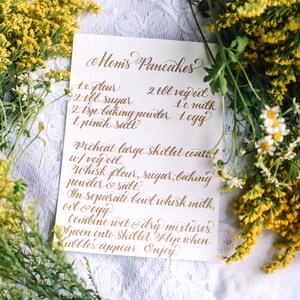 Mom's Pancakes
1 c flour 2 tbl veg oil
2 tbl sugar 1 c milk
2 tsp baking powder 1 egg
1 pinch salt
Preheat large skillet coated
w/ veg oil.
Whisk flour, sugar, baking
powder & salt.
In separate bowl whisk milk,
oil & egg.
Combine wet & dry mixtures
Spoon onto skillet. Flip when
bubbles appear. Enjoy.